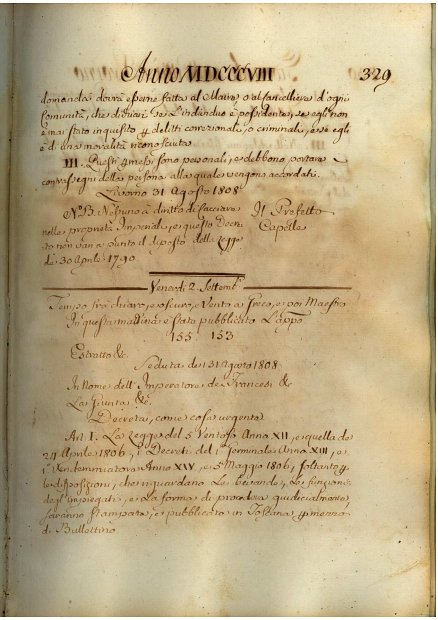 Anno MDCCCVIII 329
domanda dovrà essere fatta al Maire o al Cancelliere d'ogni
Comunità, che dichiari se l'individuo è possidente, se egli non
è mai stato inquisito p delitti correzionali, o criminali, e se egli
è d'una moralità riconosciuta.
III. Questi pmessi sono personali, e debbono portare i
contrassegni della persona alla quale vengono accordati.
Livorno 31 Agosto 1808
NB. Nessuno à diritto di Cacciare
nelle proprietà Imperiali, e questo Decre
to non varia punto il disposto della Legge
de 30 Aprile 1790
Il Prefetto
Capelle
Venerdì 2. Settembe
Tempo fra chiaro, e oscuro, e Vento a Greco, e poi Maestro
In questa mattina è stato pubblicato l'appo
155 153
Estratto &c
Seduta de 31 Agosto 1808
In Nome dell'Imperatore de Francesi &c
La Giunta &c.
Decreta, come cosa urgente
Art. I. La Legge del 5 Ventoso Anno XII, e quella de
24 Aprile 1806, i Decreti del 1° Germinale Anno XIII, e
1° Vendemmiatore Anno XIV, e 5 Maggio 1806, soltanto p
le disposizioni, che riguardano le bevande, le funzioni
degl'impiegati, e la forma di procedere giudicialmente
saranno stampati, e pubblicati in Toscana p mezzo
di Bullettino